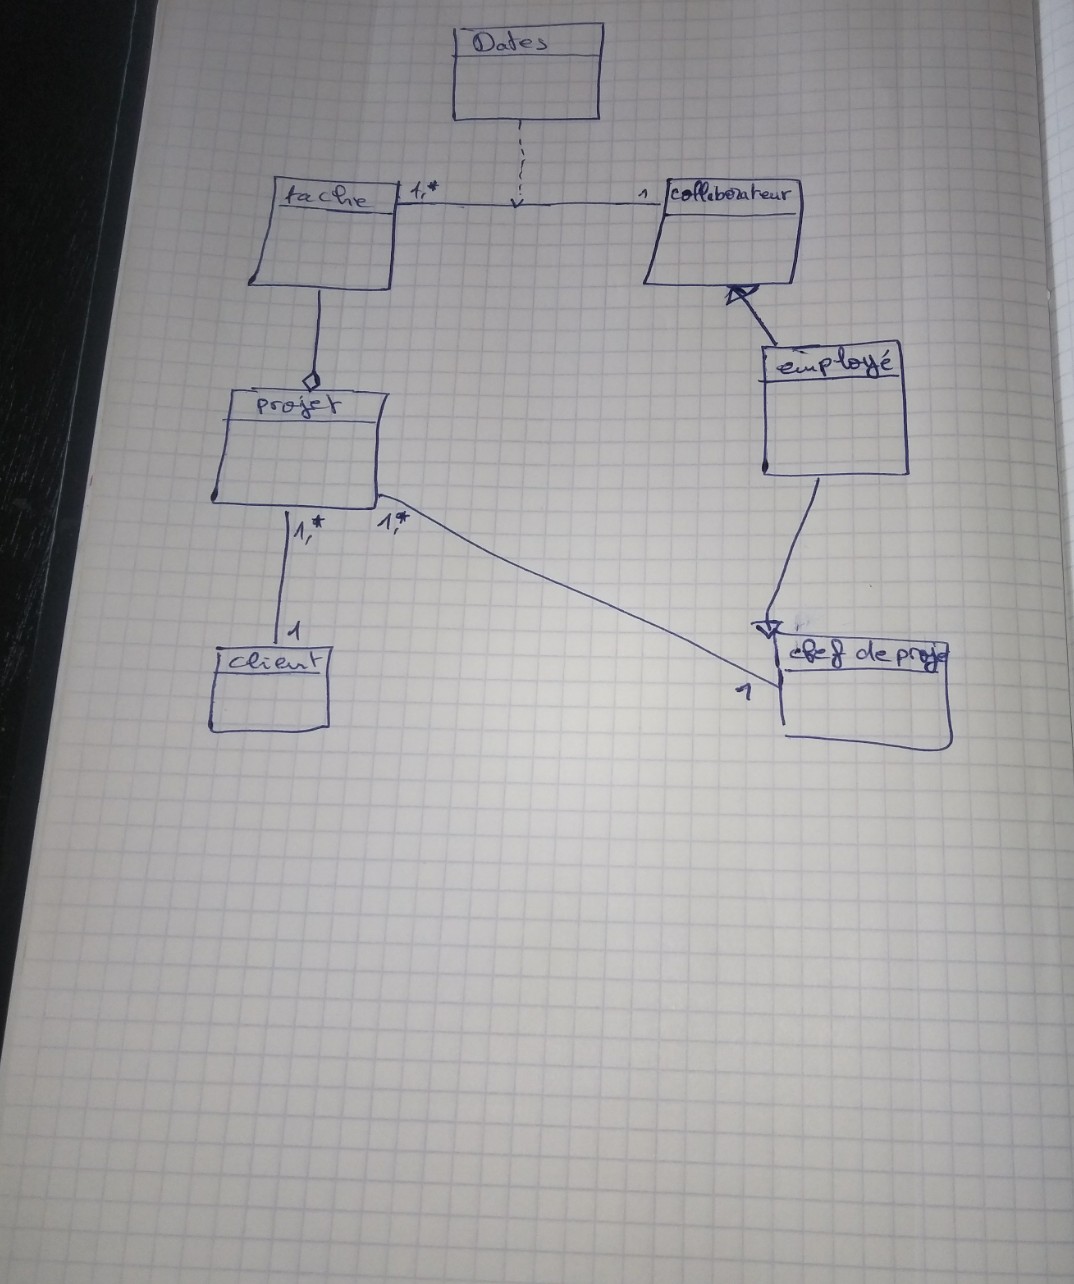 Dates
tache 1,* 1 collaborateur
employé
projet
1,* 1,*
1
client
chef de proje
1